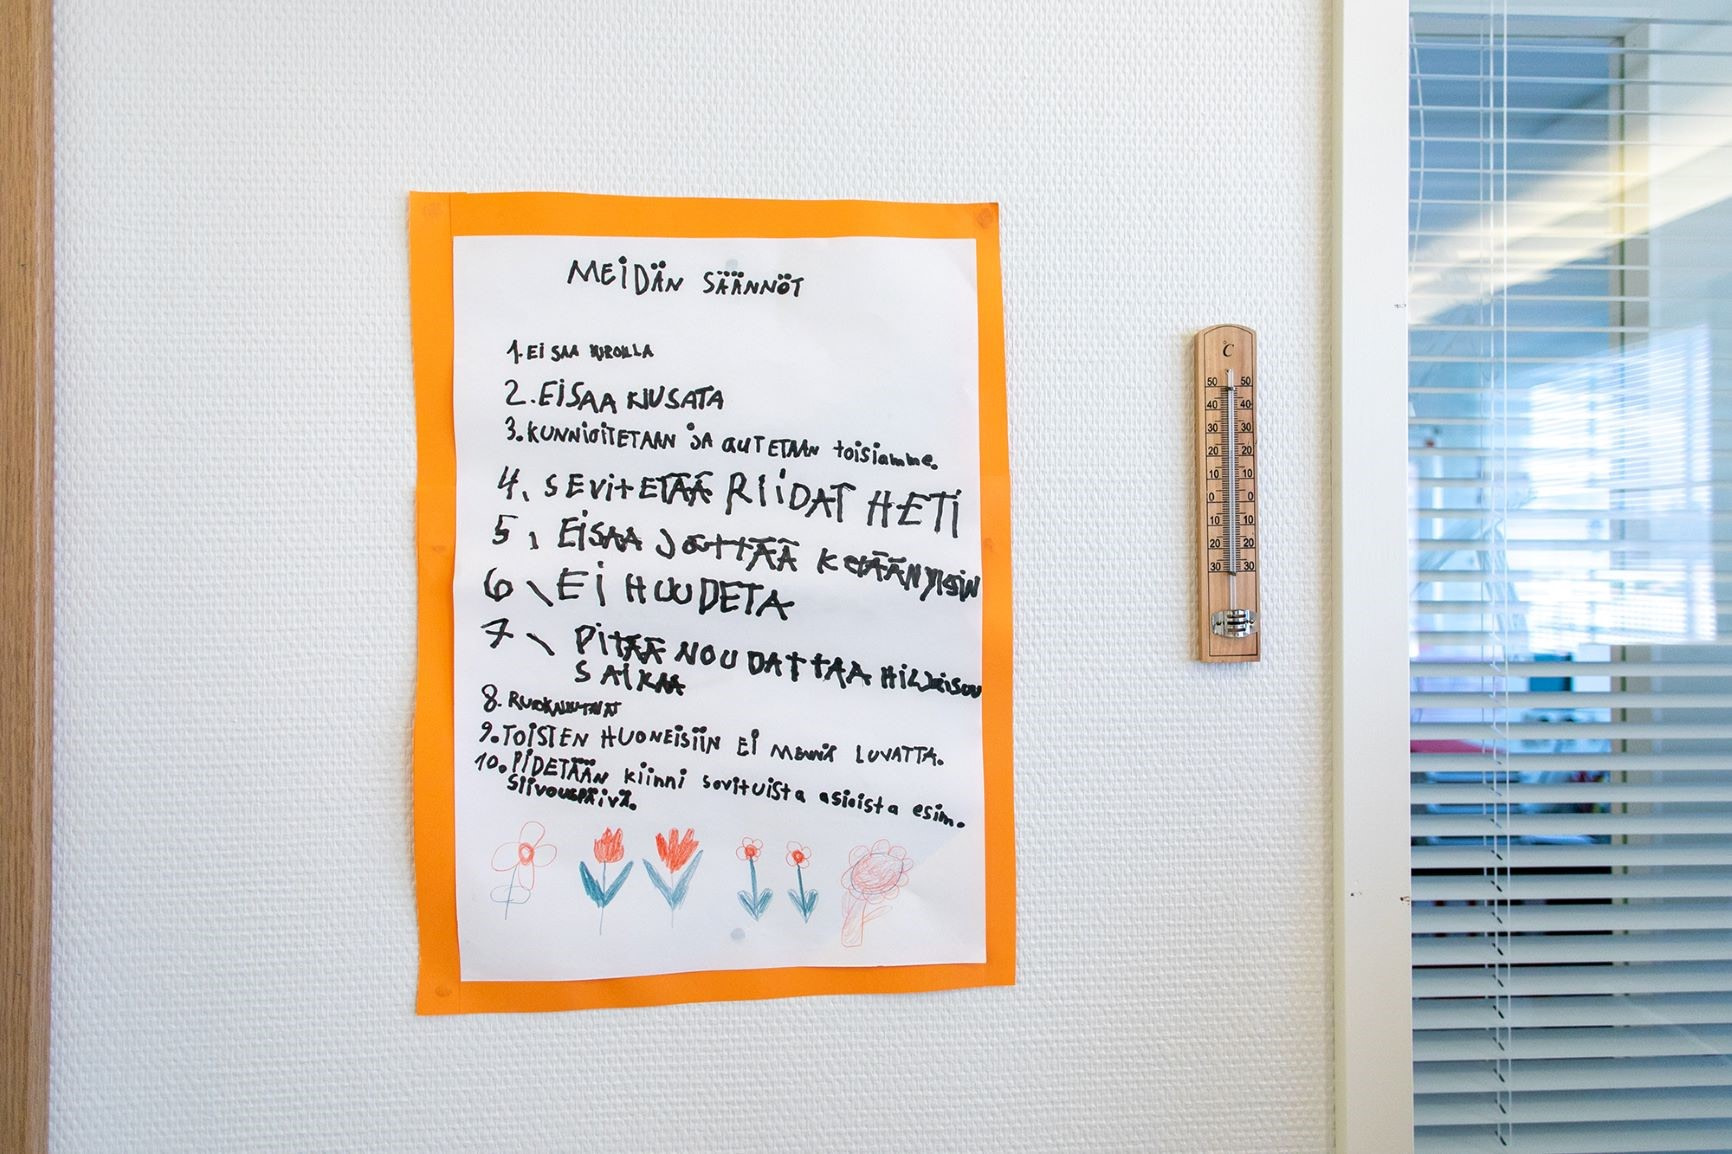 MEIDÄN SÄÄNNÖT
1. EI SAA KIROILLA
2. EI SAA KIUSATA
3. KUNNIOITETAAN JA AUTETAAN toisiamme.
4. SEVITETÄÄ RIIDAT HETI
5, EI SAA JÄTTÄÄ KETÄÄN YKSIN
6 \ EI HUUDETA
7 \ PITÄÄ NOUDATTAA HILJAISUU
SAIKAA
8. RUOKAILUTAVAT
9. TOISTEN HUONEISIIN EI MENNÄ LUVATTA.
10. PIDETÄÄN kiinni sovituista asioista esim.
SIIVOUSPÄIVÄ.
°C
50 50
40 40
30 30
20 20
10 10
0 0
10 10
20 20
30 30